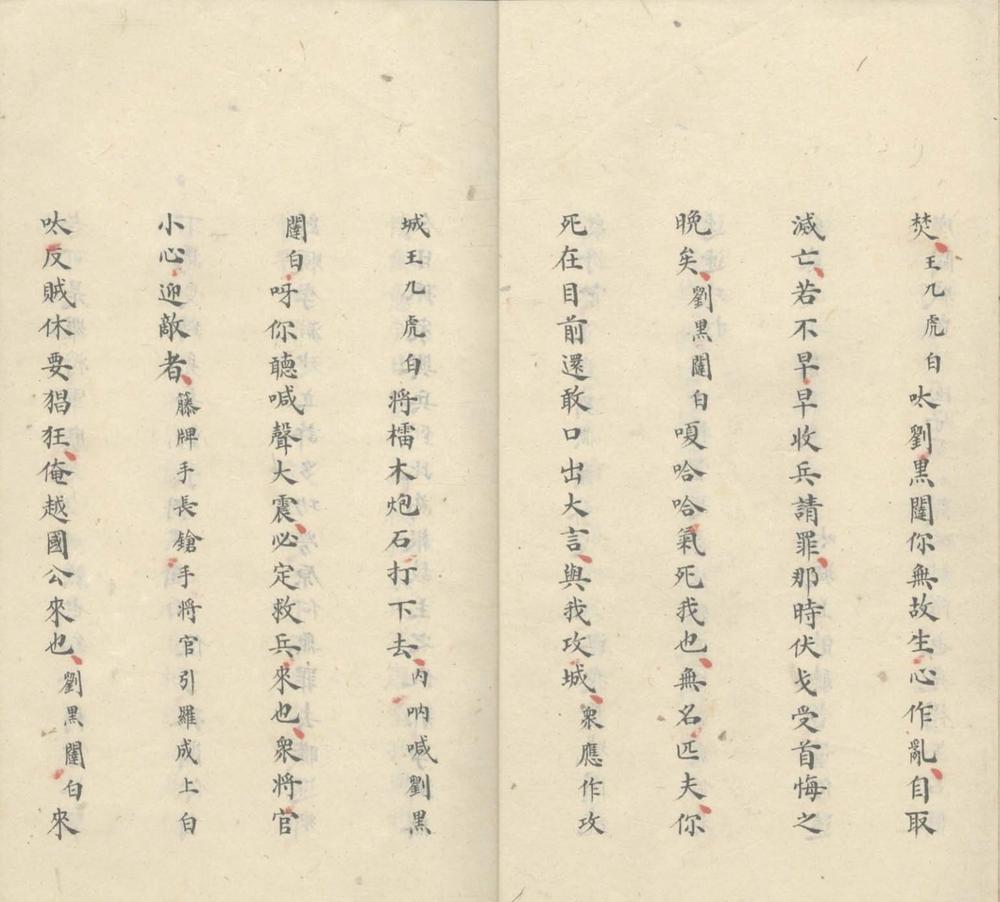 焚王九虎白呔劉黑闥你無故生心作亂自取
滅亡若不早早收兵請罪那時伏戈受首悔之
晚矣劉黑闥白嗄哈哈氣死我也無名匹夫你
死在目前還敢口出大言與我攻城衆應作攻
城王九虎白將檑木炮石打下去内吶喊劉黑
闥白呀你聽喊聲大震必定救兵來也衆將官
小心迎敵者籐牌手長鎗手將官引羅成上白
呔反賊休要猖狂俺越國公來也劉黑闥白來